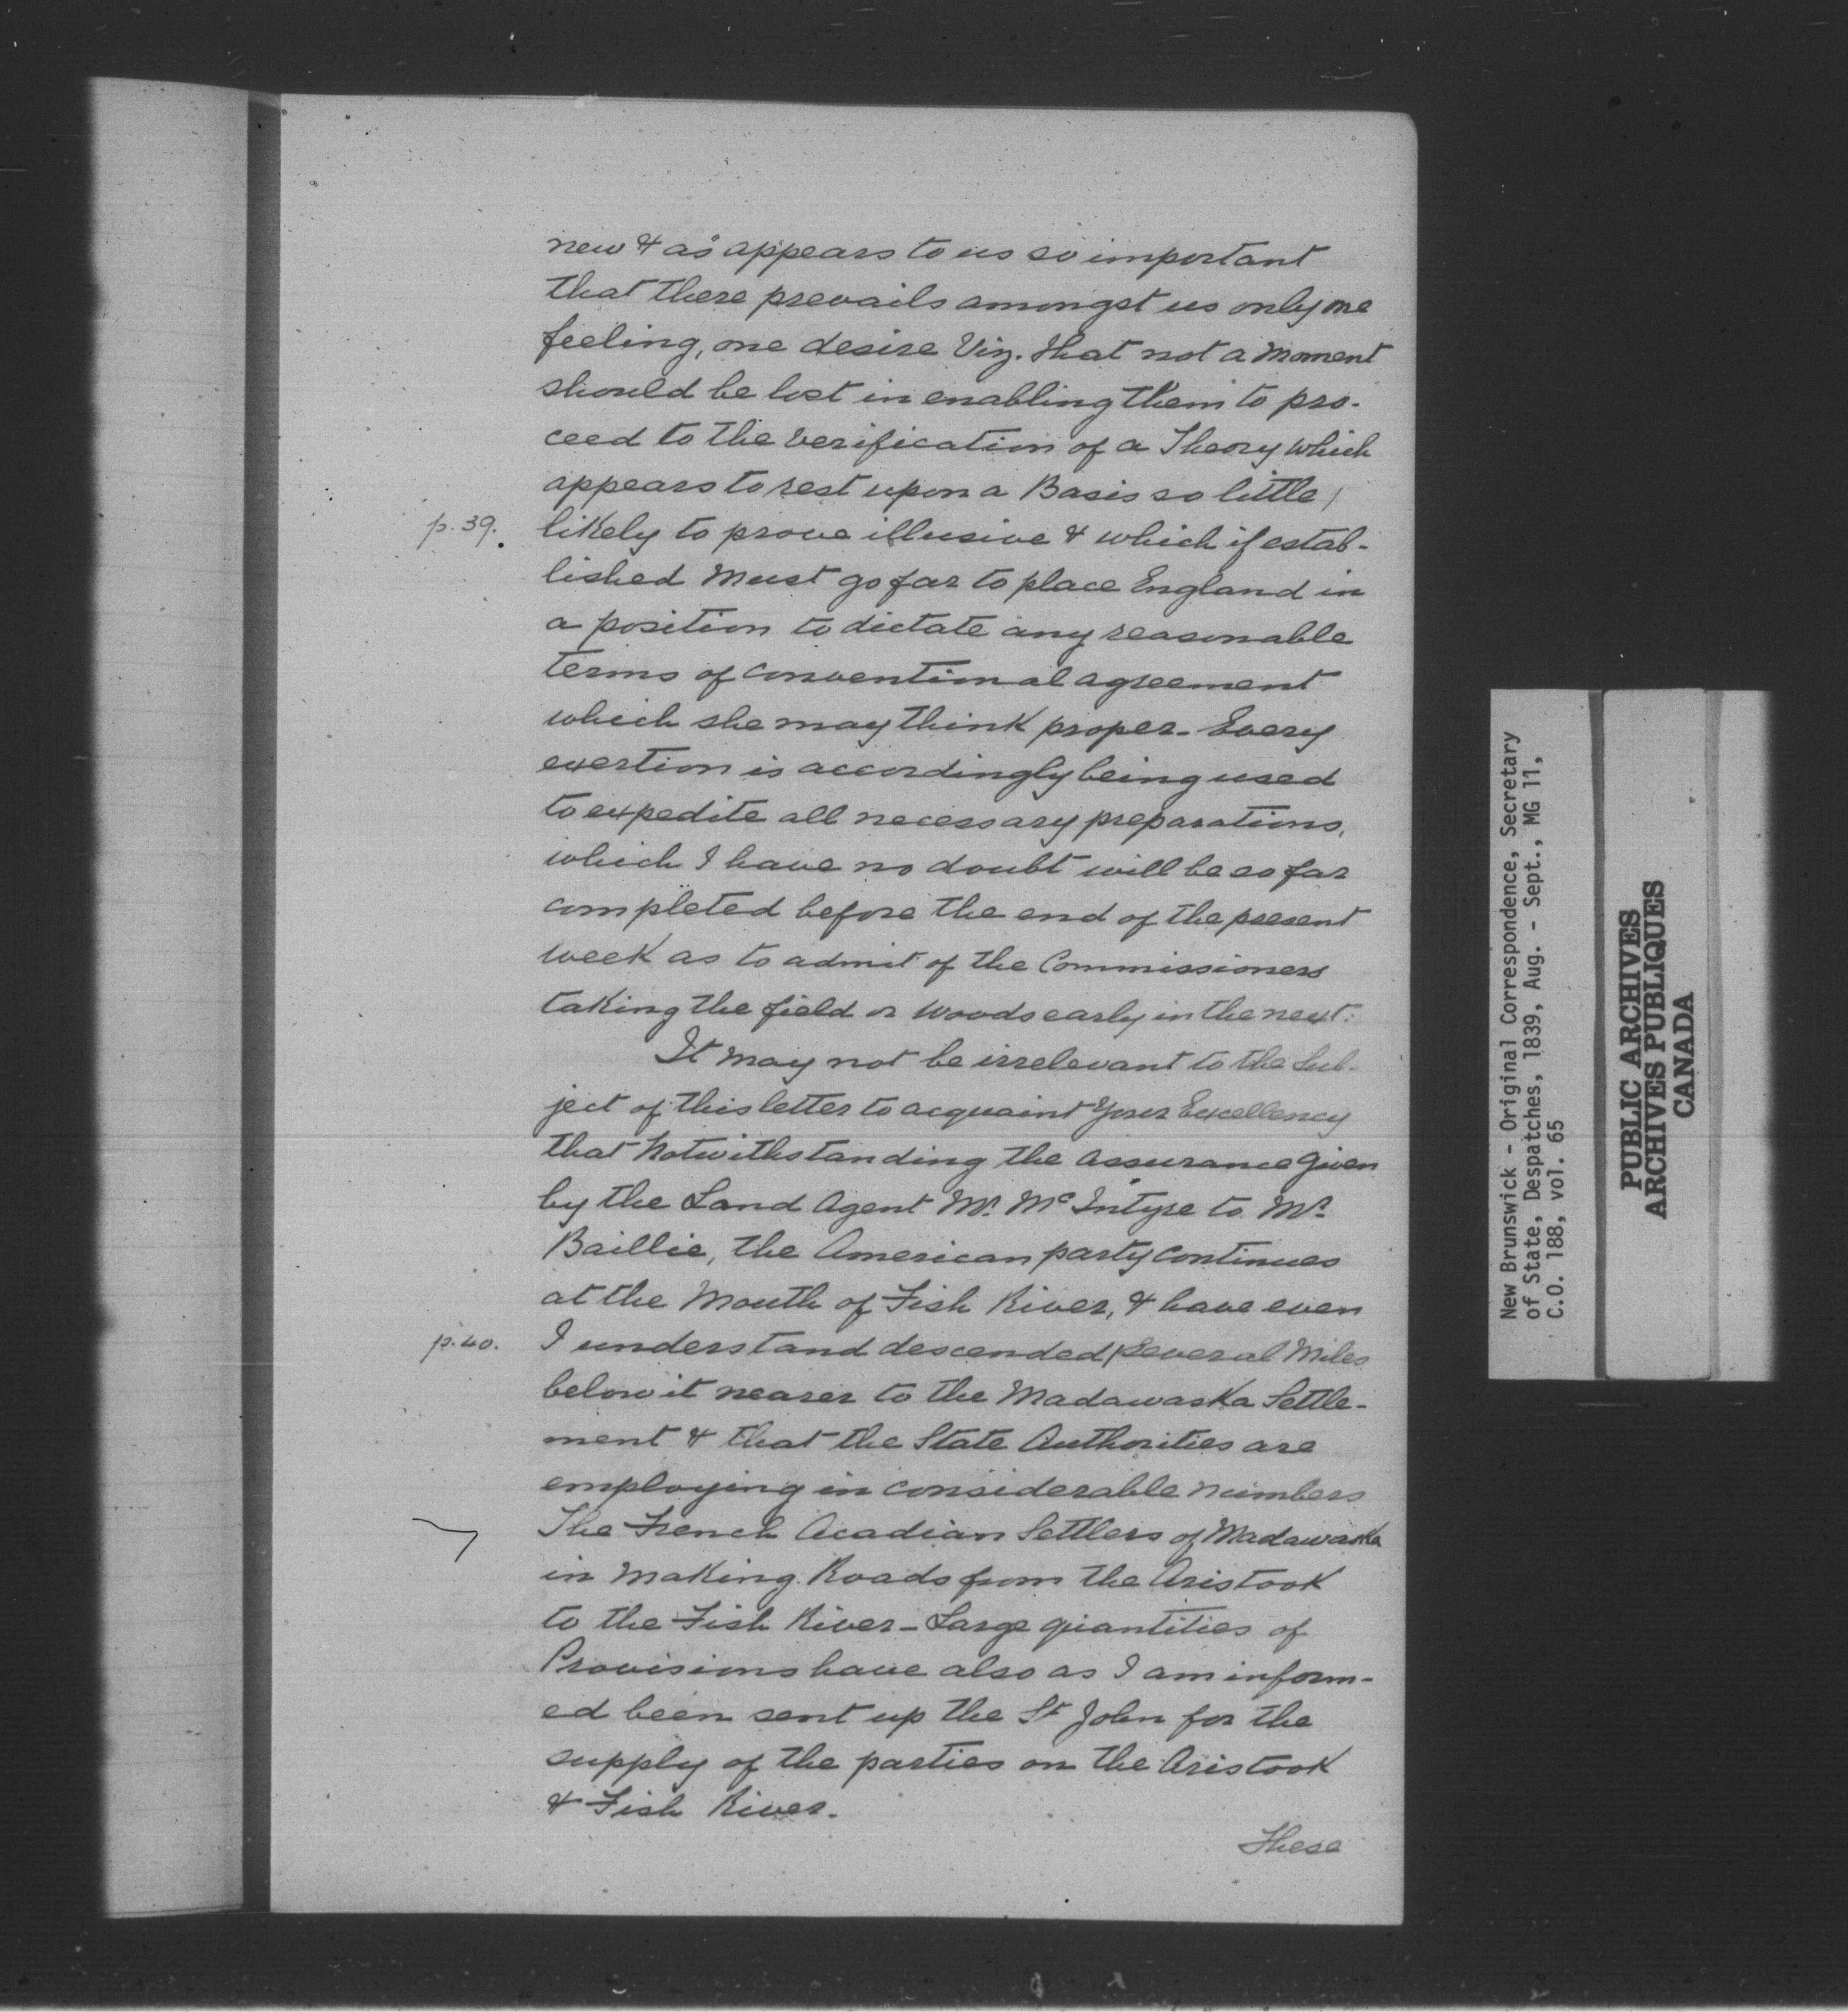 new & as appears to us so important
that there prevails amongst us only one
feeling, one desire Viz. that not a moment
should be lost in enabling them to pro-
ceed to the verification of a Theory which
appears to rest upon a Basis so little /
p. 39. likely to prove illusive & which if estab-
lished must go far to place England in
a position to dictate any reasonable
terms of conventional agreement
which she may think proper - Every
exertion is accordingly being used
to expedite all necessary preparations,
which I have no doubt will be so far
completed before the end of the present
week as to admit of the Commissioners
taking the field or woods early in the next.
It may not be irrelevant to the Sub-
ject of this letter to acquaint Your Excellency
that Notwithstanding the assurance given
by the Land Agent Mr. McIntyre to Mr.
Baillie, the American party continues
at the Mouth of Fish River, & have even
p. 40. I understand descended / several Miles
below it nearer to the Madawaska Settle-
ment & that the State Authorities are
employing in considerable numbers
The French Acadian Settlers of Madawaska
in Making Roads from the Aristook
to the Fish River - Large quantities of
Provisions have also as I am inform-
ed been sent up the St John for the
supply of the parties on the Aristook
& Fish River.
These
New Brunswick - Original Correspondence, Secretary
of State, Despatches, 1839, Aug. - Sept., MG 11,
C.O. 188, vol. 65
PUBLIC ARCHIVES
ARCHIVES PUBLIQUES
CANADA